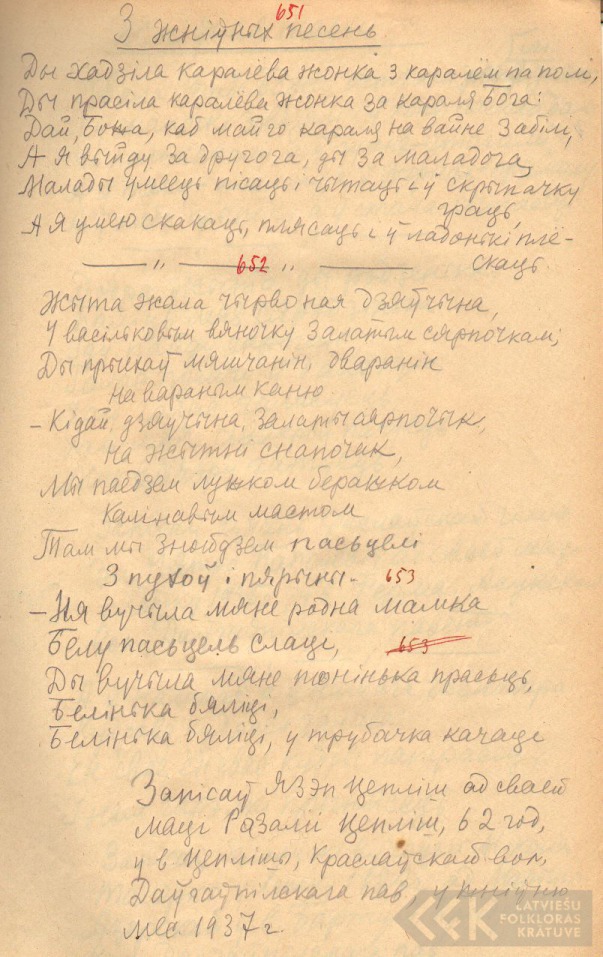 651
З жніўных песень
Ды хадзіла каралёва жонка з каралём па полі,
Ды прасіла каралёва жонка за караля Бога:
Дай, Божа, каб майго караля на вайне забілі,
А я выйду за другога, ды за маладога,
Малады умеець пісаць і чытаць і ў скрыпачку
граць,
А я умею скакаць, плясаць і ў ладонькі плё-
скаць.
— „ — 652 „ —
Жыта жала чырвоная дзяўчына,
У васільковым вяночку залатым сярпочкам;
Ды прыехаў мяшчанін, дваранін
На вараным каню.
– Кідай, дзяучына, залаты сярпочык,
На жытні снапочак,
Мы паедзем лужком беражком
Калінавым мастом
Там мы знойдзем пасьцелі
З пухоў і пярыны. 653
– Ня вучыла мяне родна мамка
Белу пасьцель слаці, 653
Ды вучыла мяне тонінька прасьць,
Белінька бяліці,
Белінька бяліці, у трубачка качаці
Запісаў Язэп Цепліш ад сваей
маці Разаліі Цепліш, 62 год,
у в. Цеплішы, Краслаўскай вол,
Даўгаўпілскага пав, у жніўню
мес. 1937 г.
LATVIEŠU
FOLKLORAS
KRĀTUVE